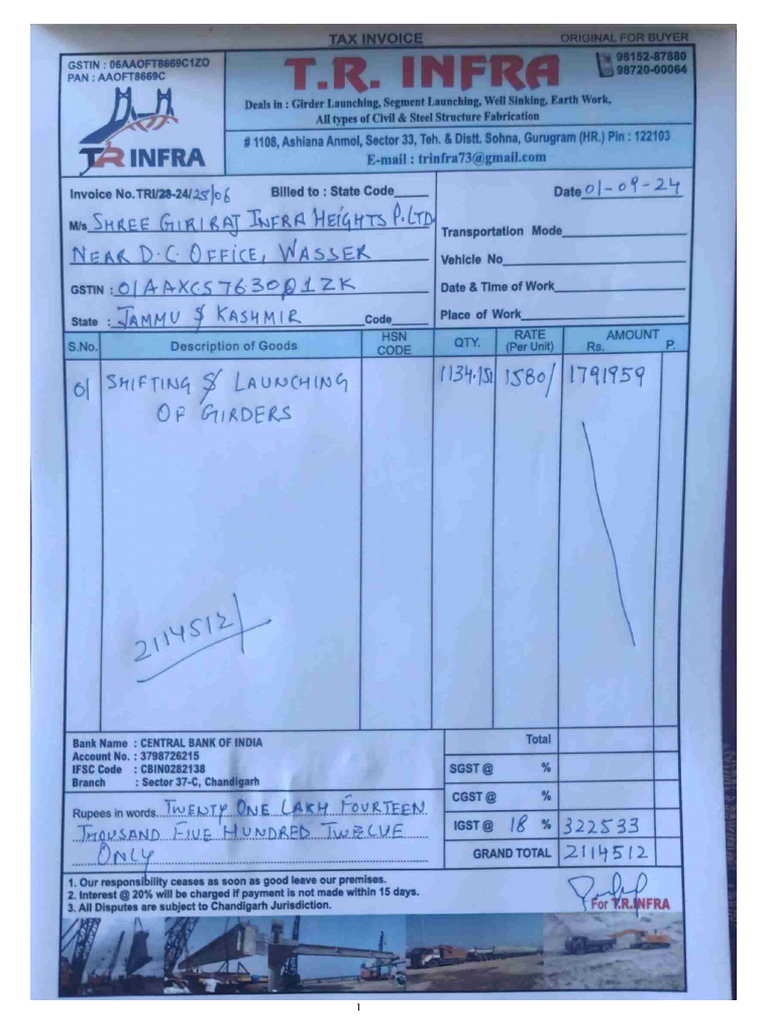 TAX INVOICE
ORIGINAL FOR BUYER
GSTIN : 06AAOFT8669C1ZO
PAN : AAOFT8669C
TR INFRA
T.R. INFRA
98152-87880
98720-00064
Deals in : Girder Launching, Segment Launching, Well Sinking, Earth Work,
All types of Civil & Steel Structure Fabrication
# 1108, Ashiana Anmol, Sector 33, Teh. & Distt. Sohna, Gurugram (HR.) Pin : 122103
E-mail : trinfra73@gmail.com
Invoice No. TRI/23-24/25/06 Billed to : State Code
Date 01-09-24
M/s SHREE GIRIRAJ INFRA HEIGHTS P. LTD
NEAR D.C. OFFICE, WASSER
GSTIN : 01AAXCS7630Q1ZK
State : JAMMU & KASHMIR Code
Transportation Mode
Vehicle No
Date & Time of Work
Place of Work
S.No. Description of Goods HSN CODE QTY. RATE (Per Unit) AMOUNT Rs. P.
01 SHIFTING & LAUNCHING 1134.151 1580/ 1791959
OF GIRDERS
2114512/
Bank Name : CENTRAL BANK OF INDIA
Account No. : 3798726215
IFSC Code : CBIN0282138
Branch : Sector 37-C, Chandigarh
Total
SGST @ %
CGST @ %
IGST @ 18 % 322533
GRAND TOTAL 2114512
Rupees in words TWENTY ONE LAKH FOURTEEN
THOUSAND FIVE HUNDRED TWELVE
ONLY
1. Our responsibility ceases as soon as good leave our premises.
2. Interest @ 20% will be charged if payment is not made within 15 days.
3. All Disputes are subject to Chandigarh Jurisdiction.
For T.R.INFRA
1